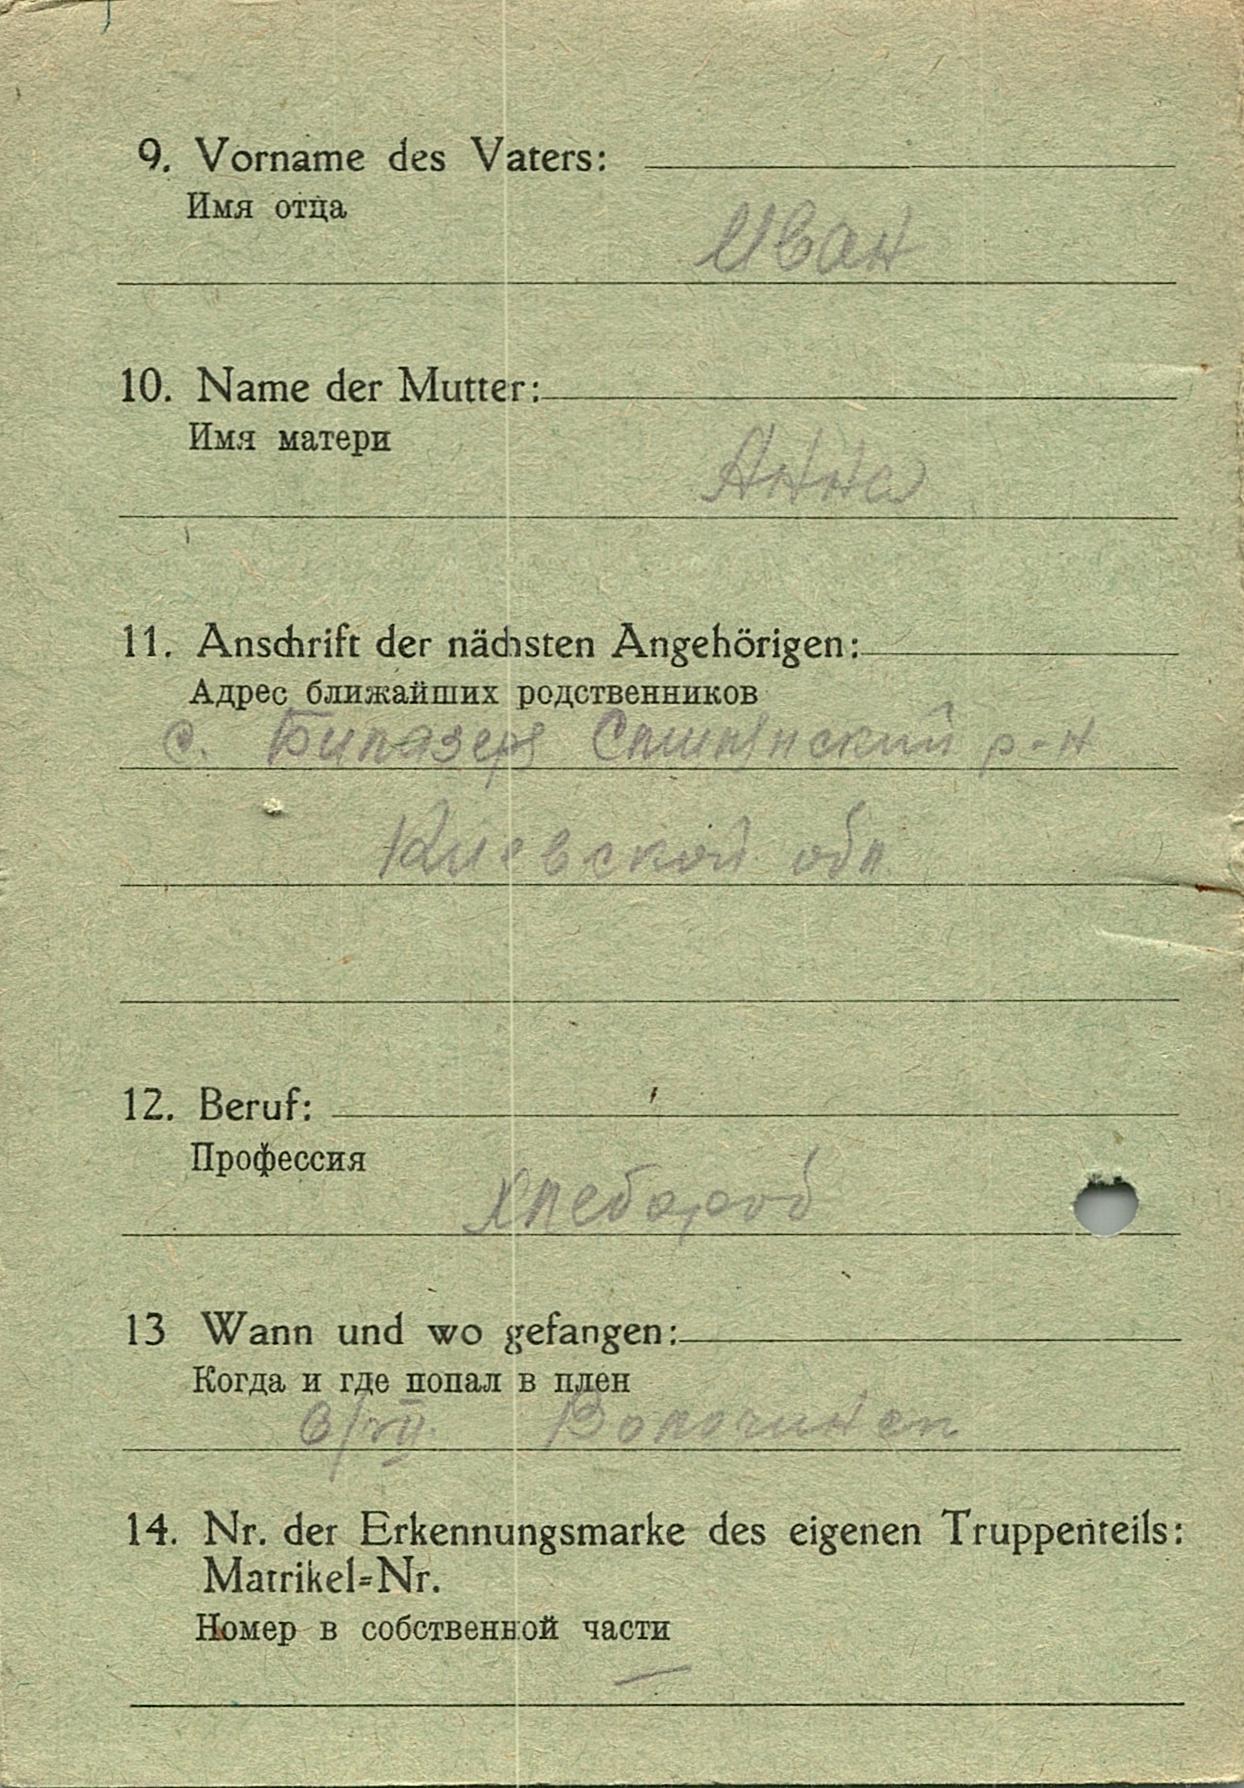 9. Vorname des Vaters:
Имя отца
Иван
10. Name der Mutter:
Имя матери
Анна
11. Anschrift der nächsten Angehörigen:
Адрес ближайших родственников
с. р-н
Киевской обл.
12. Beruf:
Профессия
Хлебороб
13 Wann und wo gefangen:
Когда и где попал в плен
6/VII.
14. Nr. der Erkennungsmarke des eigenen Truppenteils:
Matrikel=Nr.
Номер в собственной части
—